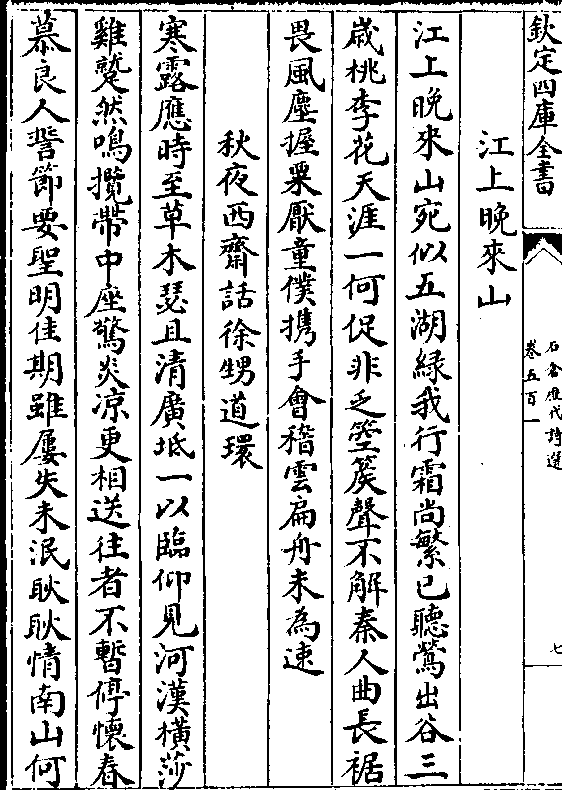 欽定四庫全書
石倉歷代詩選
卷五百一
七
江上晚來山
江上晚來山宛似五湖緑我行霜尚繁已聽鶯出谷三
歳桃李花天涯一何促非乏箜篌聲不解秦人曲長裾
畏風塵握粟厭童僕携手會稽雲扁舟未為速
秋夜西齋話徐甥道環
寒露應時至草木瑟且清廣坻一以臨仰見河漢横莎
雞蹵然鳴攬帶中座驚炎凉更相送往者不暫停懷春
慕良人誓節要聖明佳期雖屢失未泯耿耿情南山何